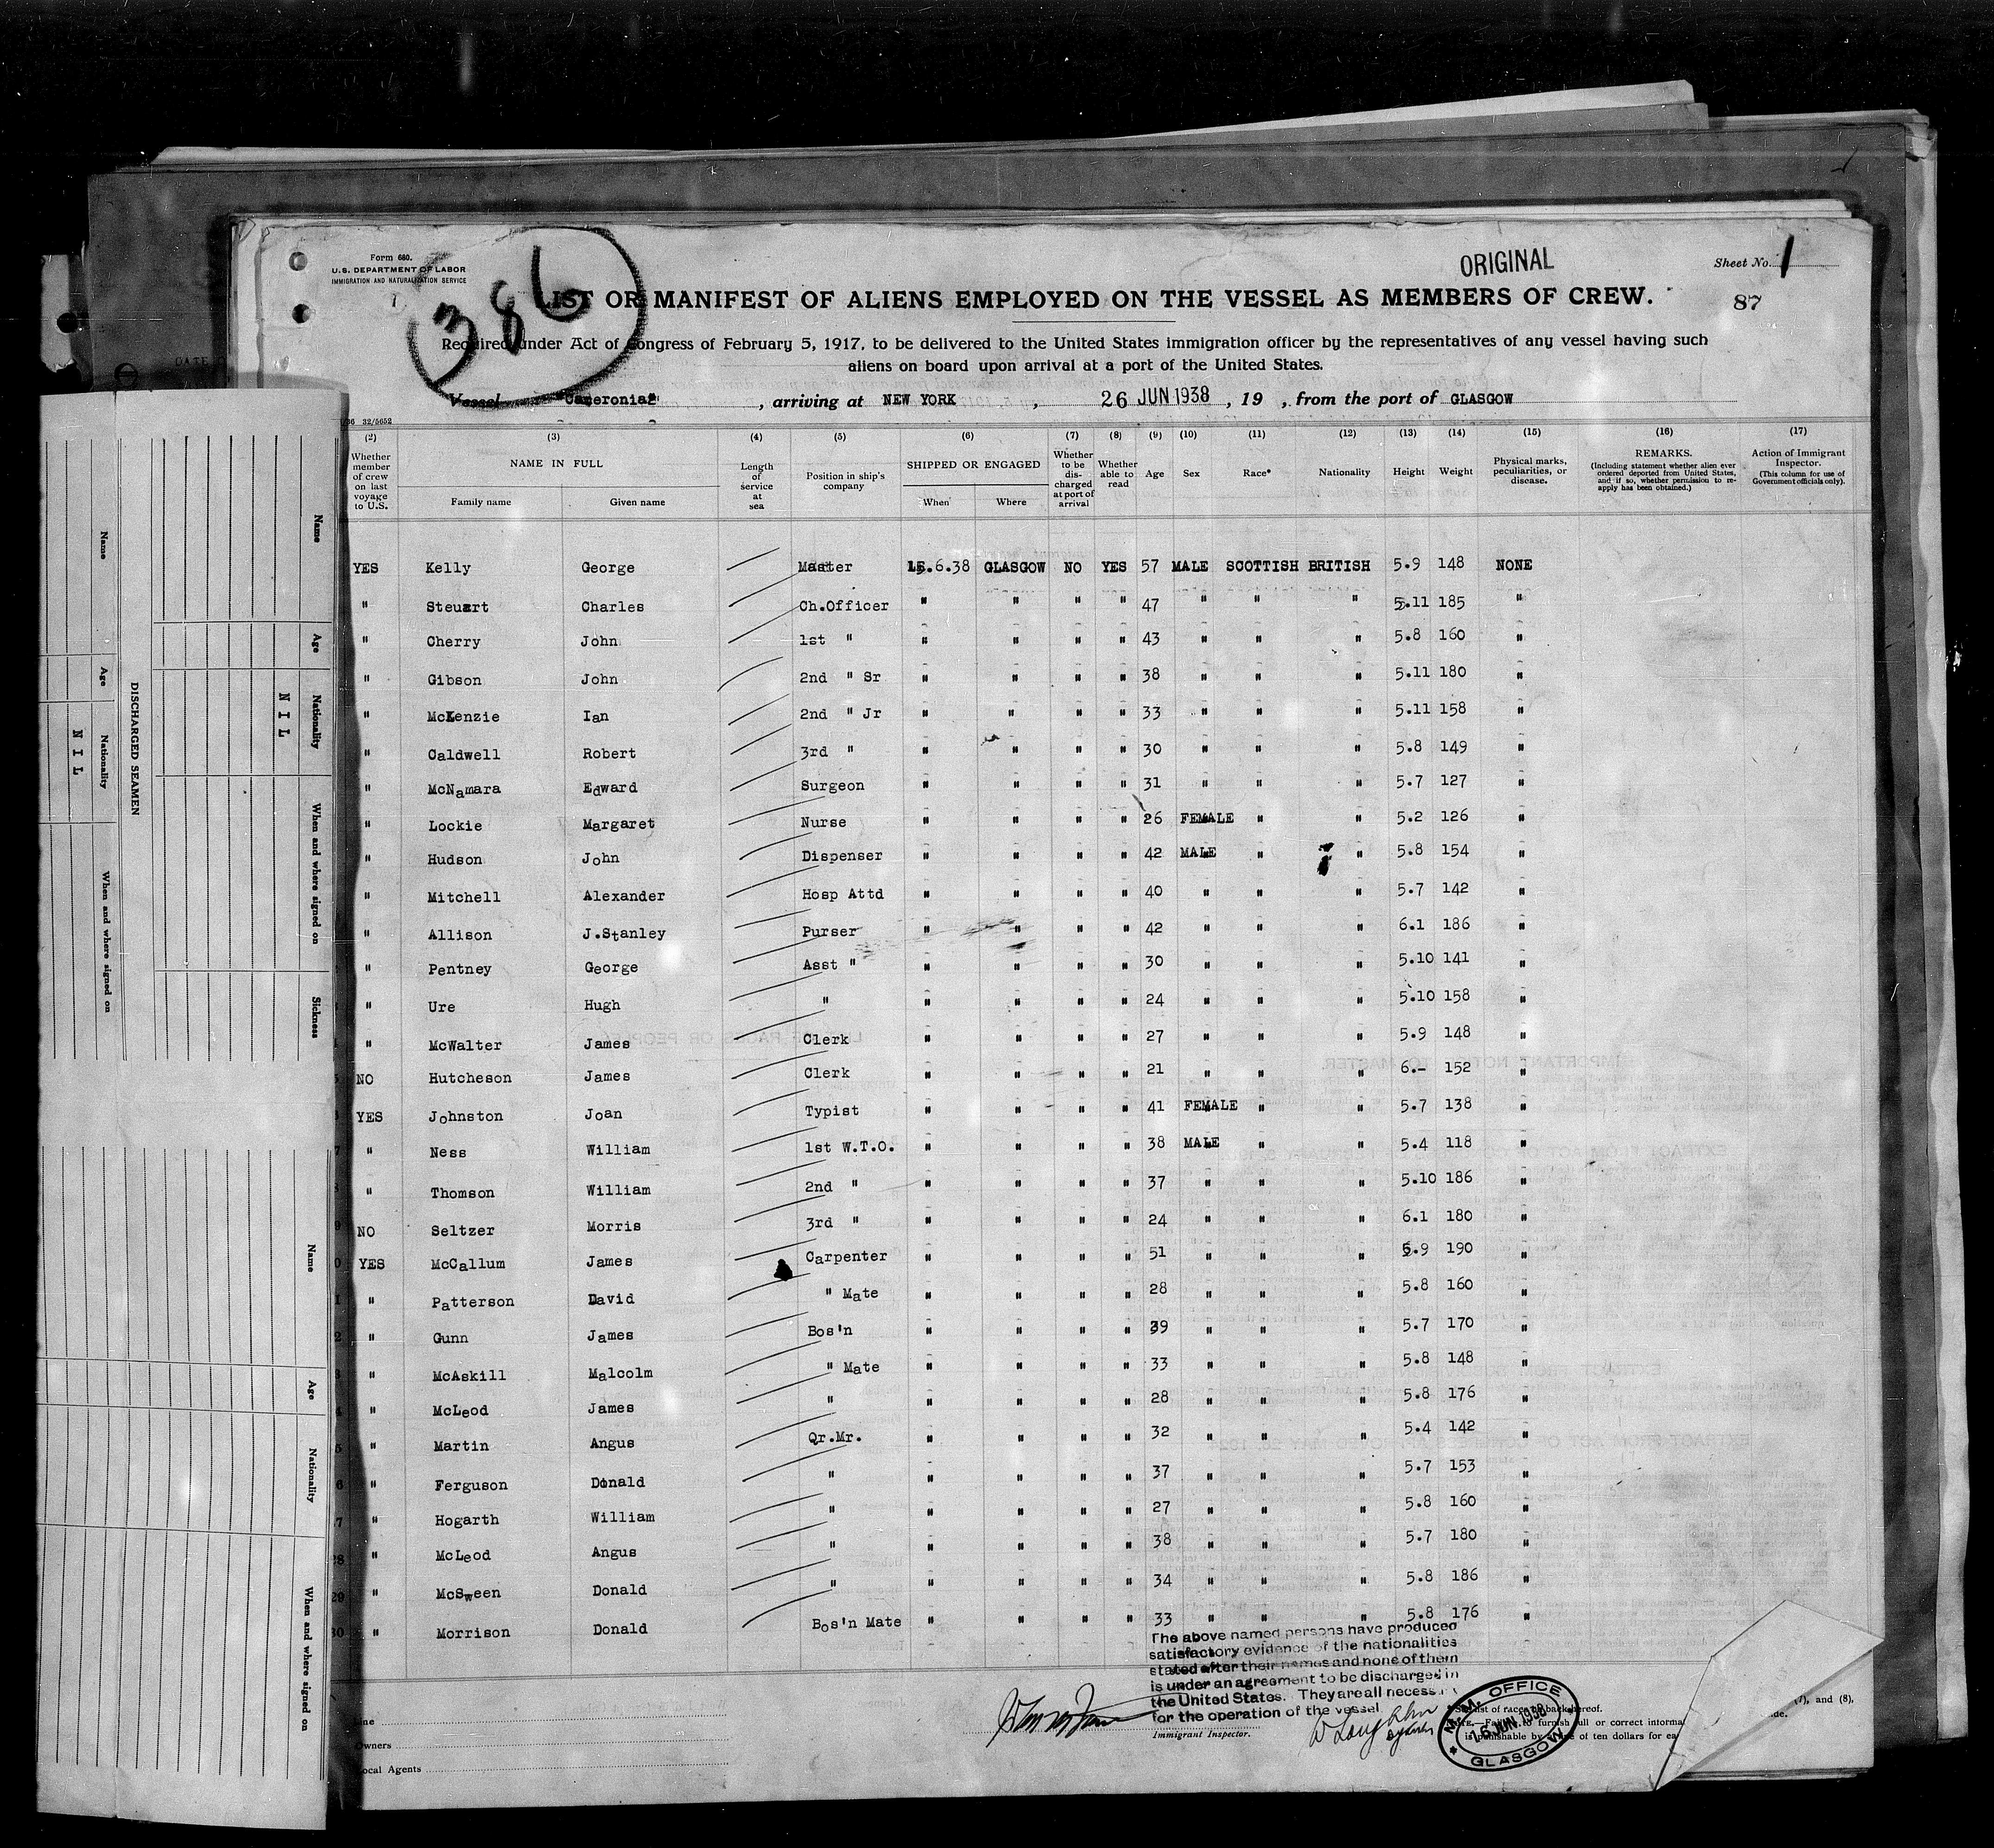 Form 680.
U.S. DEPARTMENT OF LABOR
IMMIGRATION AND NATURALIZATION SERVICE
386
ORIGINAL
Sheet No. 1
LIST OR MANIFEST OF ALIENS EMPLOYED ON THE VESSEL AS MEMBERS OF CREW.
87
Required under Act of Congress of February 5, 1917, to be delivered to the United States immigration officer by the representatives of any vessel having such
aliens on board upon arrival at a port of the United States.
Vessel "Cameronia", arriving at NEW YORK, 26 JUN 1938, 19 , from the port of GLASGOW
(2) (3) (4) (5) (6) (7) (8) (9) (10) (11) (12) (13) (14) (15) (16) (17)
Whether member of crew on last voyage to U.S.
NAME IN FULL
Family name Given name
Length of service at sea
Position in ship's company
SHIPPED OR ENGAGED
When Where
Whether to be discharged at port of arrival
Whether able to read
Age Sex Race* Nationality Height Weight
Physical marks, peculiarities, or disease.
REMARKS.
(Including statement whether alien ever ordered deported from United States, and if so, whether permission to reapply has been obtained.)
Action of Immigrant Inspector.
(This column for use of Government officials only).
YES Kelly George Master 15.6.38 GLASGOW NO YES 57 MALE SCOTTISH BRITISH 5.9 148 NONE
" Steuart Charles Ch.Officer " " " " 47 " " " 5.11 185 "
" Cherry John 1st " " " " " 43 " " " 5.8 160 "
" Gibson John 2nd " Sr " " " " 38 " " " 5.11 180 "
" McKenzie Ian 2nd " Jr " " " " 33 " " " 5.11 158 "
" Caldwell Robert 3rd " " " " " 30 " " " 5.8 149 "
" McNamara Edward Surgeon " " " " 31 " " " 5.7 127 "
" Lockie Margaret Nurse " " " " 26 FEMALE " " 5.2 126 "
" Hudson John Dispenser " " " " 42 MALE " " 5.8 154 "
" Mitchell Alexander Hosp Attd " " " " 40 " " " 5.7 142 "
" Allison J.Stanley Purser " " " " 42 " " " 6.1 186 "
" Pentney George Asst " " " " " 30 " " " 5.10 141 "
" Ure Hugh " " " " " 24 " " " 5.10 158 "
" McWalter James Clerk " " " " 27 " " " 5.9 148 "
NO Hutcheson James Clerk " " " " 21 " " " 6.- 152 "
YES Johnston Joan Typist " " " " 41 FEMALE " " 5.7 138 "
" Ness William 1st W.T.O. " " " " 38 MALE " " 5.4 118 "
" Thomson William 2nd " " " " " 37 " " " 5.10 186 "
NO Seltzer Morris 3rd " " " " " 24 " " " 6.1 180 "
YES McCallum James Carpenter " " " " 51 " " " 5.9 190 "
" Patterson David " Mate " " " " 28 " " " 5.8 160 "
" Gunn James Bos'n " " " " 39 " " " 5.7 170 "
" McAskill Malcolm " Mate " " " " 33 " " " 5.8 148 "
" McLeod James " " " " " 28 " " " 5.8 176 "
" Martin Angus Qr.Mr. " " " " 32 " " " 5.4 142 "
" Ferguson Donald " " " " " 37 " " " 5.7 153 "
" Hogarth William " " " " " 27 " " " 5.8 160 "
" McLeod Angus " " " " " 38 " " " 5.7 180 "
" McSween Donald " " " " " 34 " " " 5.8 186 "
" Morrison Donald Bos'n Mate " " " " 33 " " " 5.8 176 "
The above named persons have produced
satisfactory evidence of the nationalities
stated after their names and none of them
is under an agreement to be discharged in
the United States. They are all necess
for the operation of the vessel
Immigrant Inspector.
Line
Owners
Local Agents
M.M. OFFICE
16 JUN 1938
GLASGOW
list of races on back hereof.
Failure to furnish full or correct informa
is punishable by fine of ten dollars for ea
(7), and (8),
DISCHARGED SEAMEN
Name Age Nationality When and where signed on Sickness
NIL
Name Age Nationality When and where signed on
NIL
Name Age Nationality When and where signed on